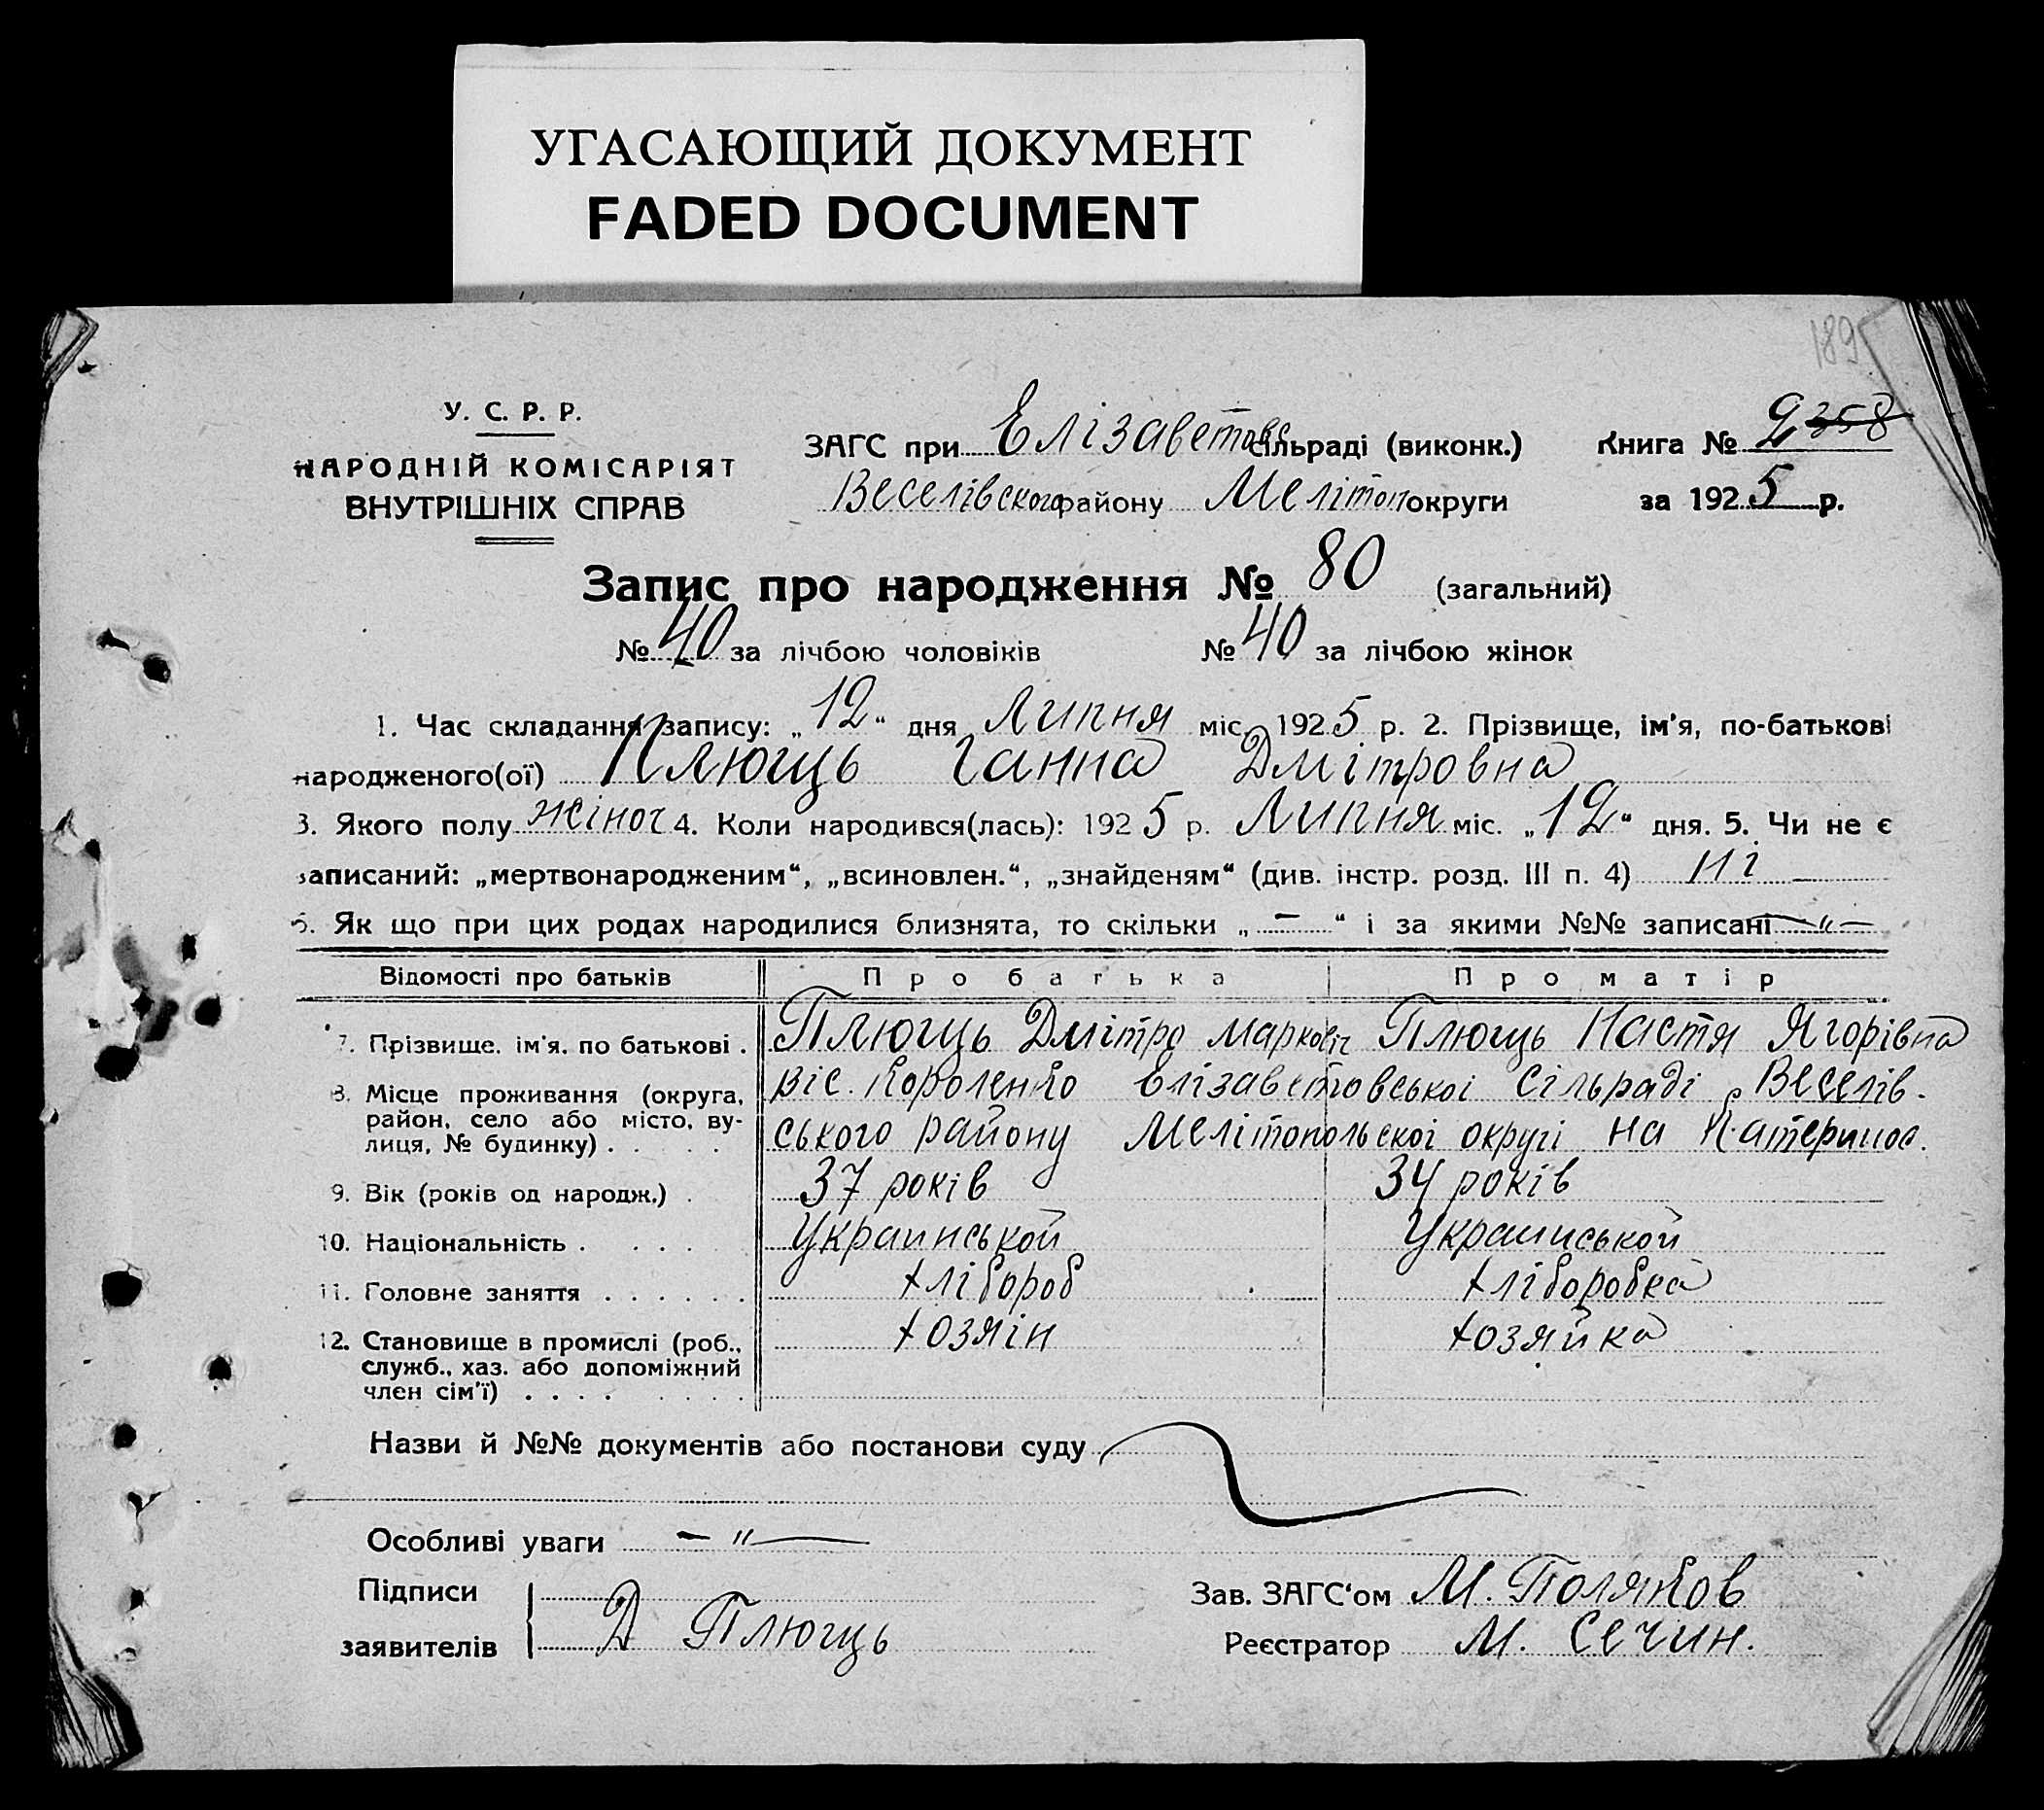 УГАСАЮЩИЙ ДОКУМЕНТ
FADED DOCUMENT
189
У. С. Р. Р.
НАРОДНІЙ КОМІСАРІЯТ
ВНУТРІШНІХ СПРАВ
ЗАГС при Елізаветовс сільраді (виконк.)
Веселівского району Мелітоп округи
Книга № 2 358
за 1925 р.
Запис про народження № 80 (загальний)
№ 40 за лічбою чоловіків № 40 за лічбою жінок
1. Час складання запису: „12“ дня Липня міс. 1925 р. 2. Прізвище, ім'я, по-батькові
народженого(ої) Плющь Ганна Дмітровна
3. Якого полу жіноч 4. Коли народився(лась): 1925 р. Липня міс. „12“ дня. 5. Чи не є
записаний: „мертвонародженим“, „всиновлен.“, „знайденям“ (див. інстр. розд. III п. 4) ні
6. Як що при цих родах народилися близнята, то скільки „—“ і за якими №№ записані —„—
Відомості про батьків Про батька Про матір
7. Прізвище, ім'я, по батькові . Плющь Дмітро Маркович Плющь Настя Ягорівна
8. Місце проживання (округа, район, село або місто, вулиця, № будинку) . . . . . віс. Короленко Елізаветовської Сільраді Веселів-
ського району Мелітопольскоі округі на Катеринос.
9. Вік (років од народж.) . 37 років 34 років
10. Національність . . . . Украинськой Украинськой
11. Головне заняття . . . . . . хлібороб хліборобка
12. Становище в промислі (роб., хозяін хозяйка
служб., хаз. або допоміжний
член сім'ї) . . . . . . . .
Назви й №№ документів або постанови суду
Особливі уваги — „ —
Підписи
заявителів Д Плющь
Зав. ЗАГС‘ом М. Поляков
Реєстратор М. Сечин.